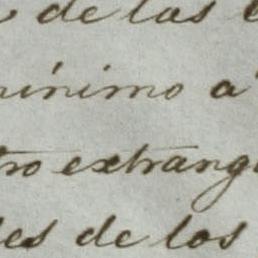 de las
mínimo á
tro extrang
les de los